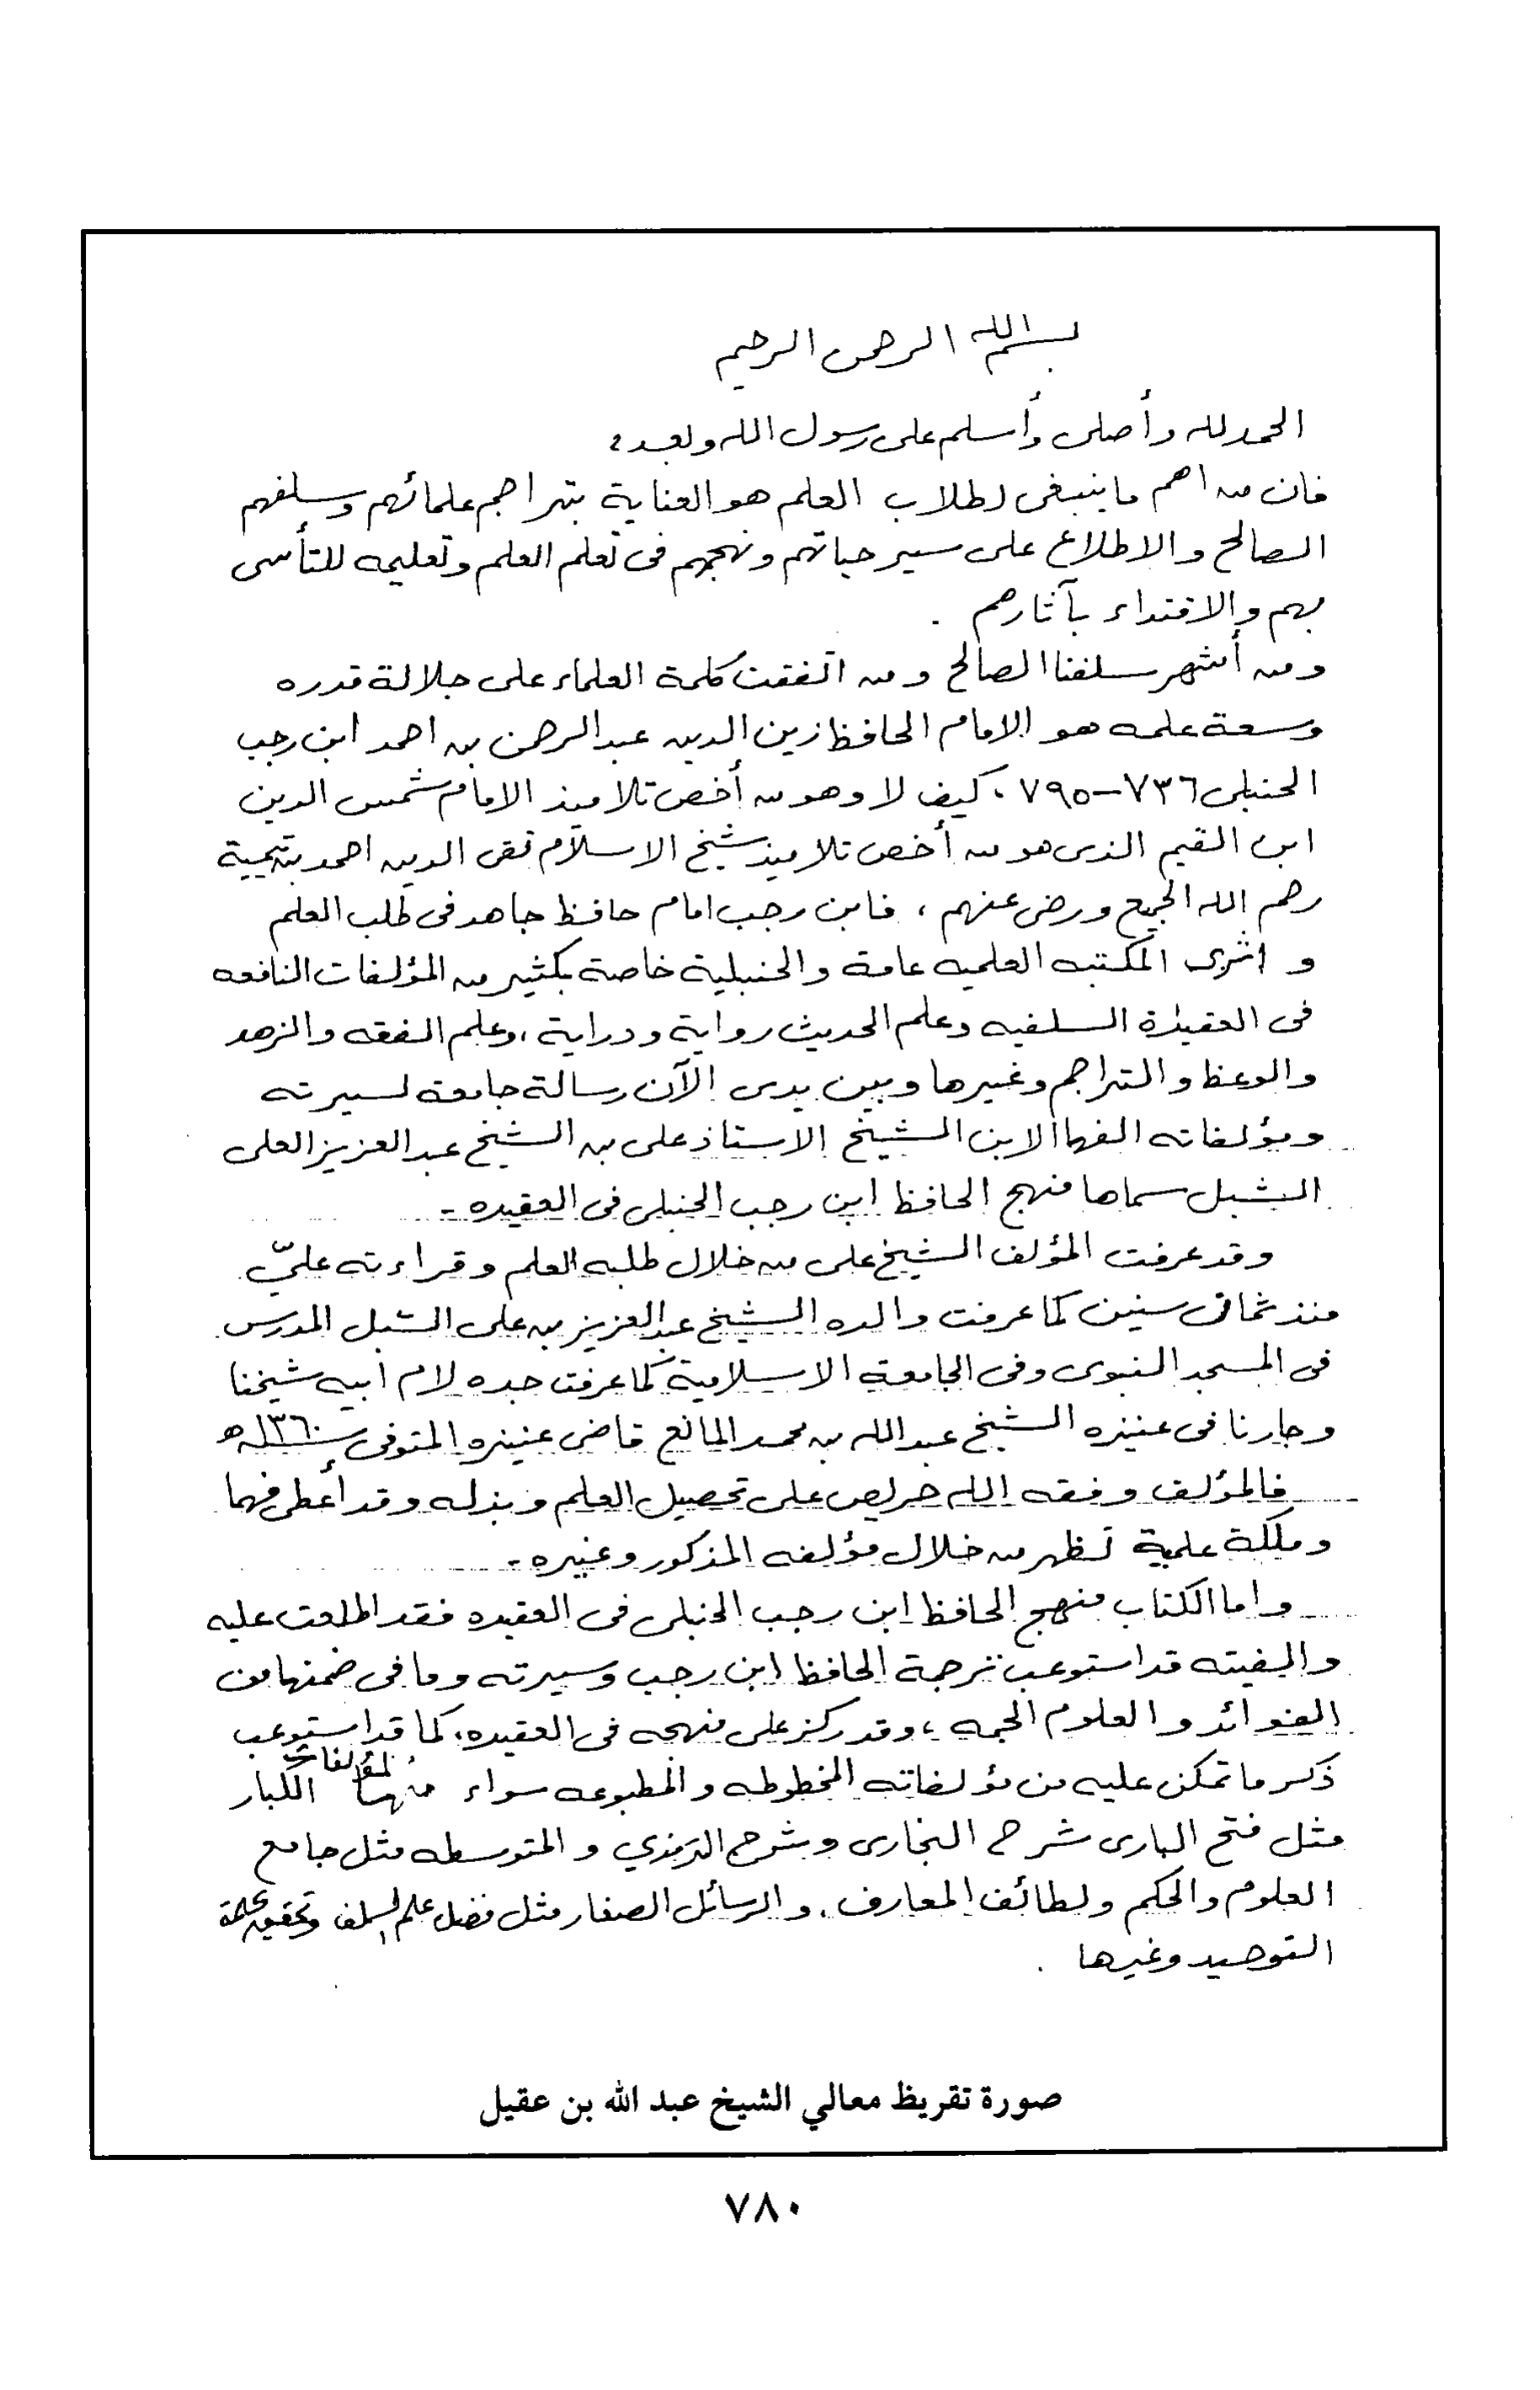 بسم الله الرحمن الرحيم
الحمد لله وأصلى وأسلم على رسول الله وبعد ؛
فان من اهم ما ينبغى لطلاب العلم هو العناية بتراجم علمائهم وسلفهم
الصالح والاطلاع على سير حياتهم ونهجهم فى تعلم العلم وتعليمه للتأسى
بهم والاقتداء بآثارهم .
ومن أشهر سلفنا الصالح ومن اتفقت كلمة العلماء على جلالة قدره
وسعة علمه هو الامام الحافظ زين الدين عبد الرحمن بن احمد ابن رجب
الحنبلى ٧٣٦-٧٩٥ ، كيف لا وهو من أخص تلاميذ الامام شمس الدين
ابن القيم الذى هو من أخص تلاميذ شيخ الاسلام تقى الدين احمد بن تيمية
رحم الله الجميع ورضى عنهم ، فابن رجب امام حافظ جاهد فى طلب العلم
و اثرى المكتبه العلميه عامة والحنبلية خاصة بكثير من المؤلفات النافعه
فى العقيدة السلفيه وعلم الحديث رواية ودراية ، وعلم الفقه والزهد
والوعظ والتراجم وغيرها وبين يدى الآن رسالة جامعة لسيرته
ومؤلفاته الفها الابن الشيخ الاستاذ على بن الشيخ عبد العزيز العلى
الشبل سماها منهج الحافظ ابن رجب الحنبلى فى العقيده -
وقد عرفت المؤلف الشيخ على من خلال طلبه العلم وقراءته علىّ
منذ ثمان سنين كما عرفت والده الشيخ عبد العزيز بن على الشبل المدرس
فى المسجد النبوى وفى الجامعة الاسلامية كما عرفت جده لام ابيه شيخنا
وجارنا فى عنيزه الشيخ عبد الله بن محمد المانع قاضى عنيزه المتوفى سنة ١٣٦٠ هـ
فالمؤلف وفقه الله حريص على تحصيل العلم وبذله وقد أعطى فهما
وملكة علمية تظهر من خلال مؤلفه المذكور وغيره -
واما الكتاب منهج الحافظ ابن رجب الحنبلى فى العقيده فقد اطلعت عليه
والفيته قد استوعب ترجمة الحافظ ابن رجب وسيرته وما فى ضمنها من
الفوائد والعلوم الجمه ، وقد ركز على منهجه فى العقيده ، كما قد استوعب
ذكر ما تمكن عليه من مؤلفاته المخطوطه والمطبوعه سواء منها المؤلفات الكبار
مثل فتح البارى شرح البخارى وشرح الترمذي والمتوسطه مثل جامع
العلوم والحكم ولطائف المعارف . والرسائل الصغار مثل فضل علم السلف وتحقيق كلمة
التوحيد وغيرها .
صورة تقريظ معالي الشيخ عبد الله بن عقيل
٧٨٠